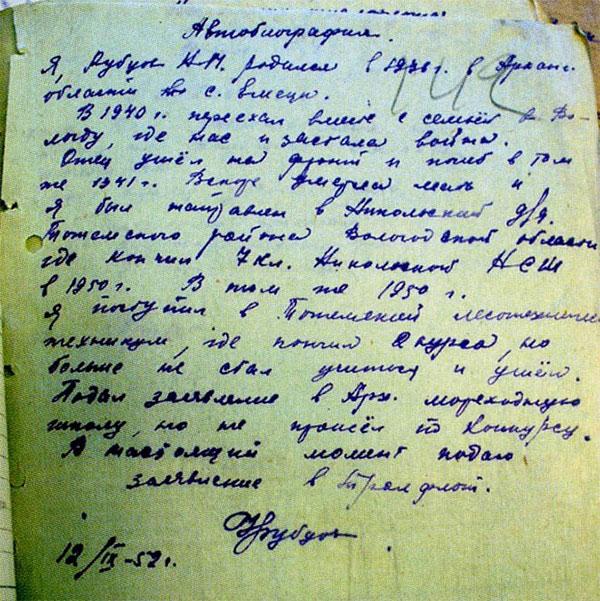 Автобиография.
Я, Рубцов Н.М. родился в 1936 г. в Арханг.
области в с. Емецк.
В 1940 г. переехал вместе с семьёй в Во-
логду, где нас и застала война.
Отец ушёл на фронт и погиб в том
же 1941 г. Вскоре умерла мать и
я был направлен в Никольский д/д
Тотемского района Вологодской области
где кончил 7 кл. Никольской НСШ
в 1950 г. В том же 1950 г.
я поступил в Тотемский лесотехнический
техникум, где кончил 2 курса, но
больше не стал учиться и ушёл.
Подал заявление в Арх. мореходную
школу, но не прошёл по конкурсу.
В настоящий момент подаю
заявление в Тралфлот.
Н Рубцов
12/IX-52 г.